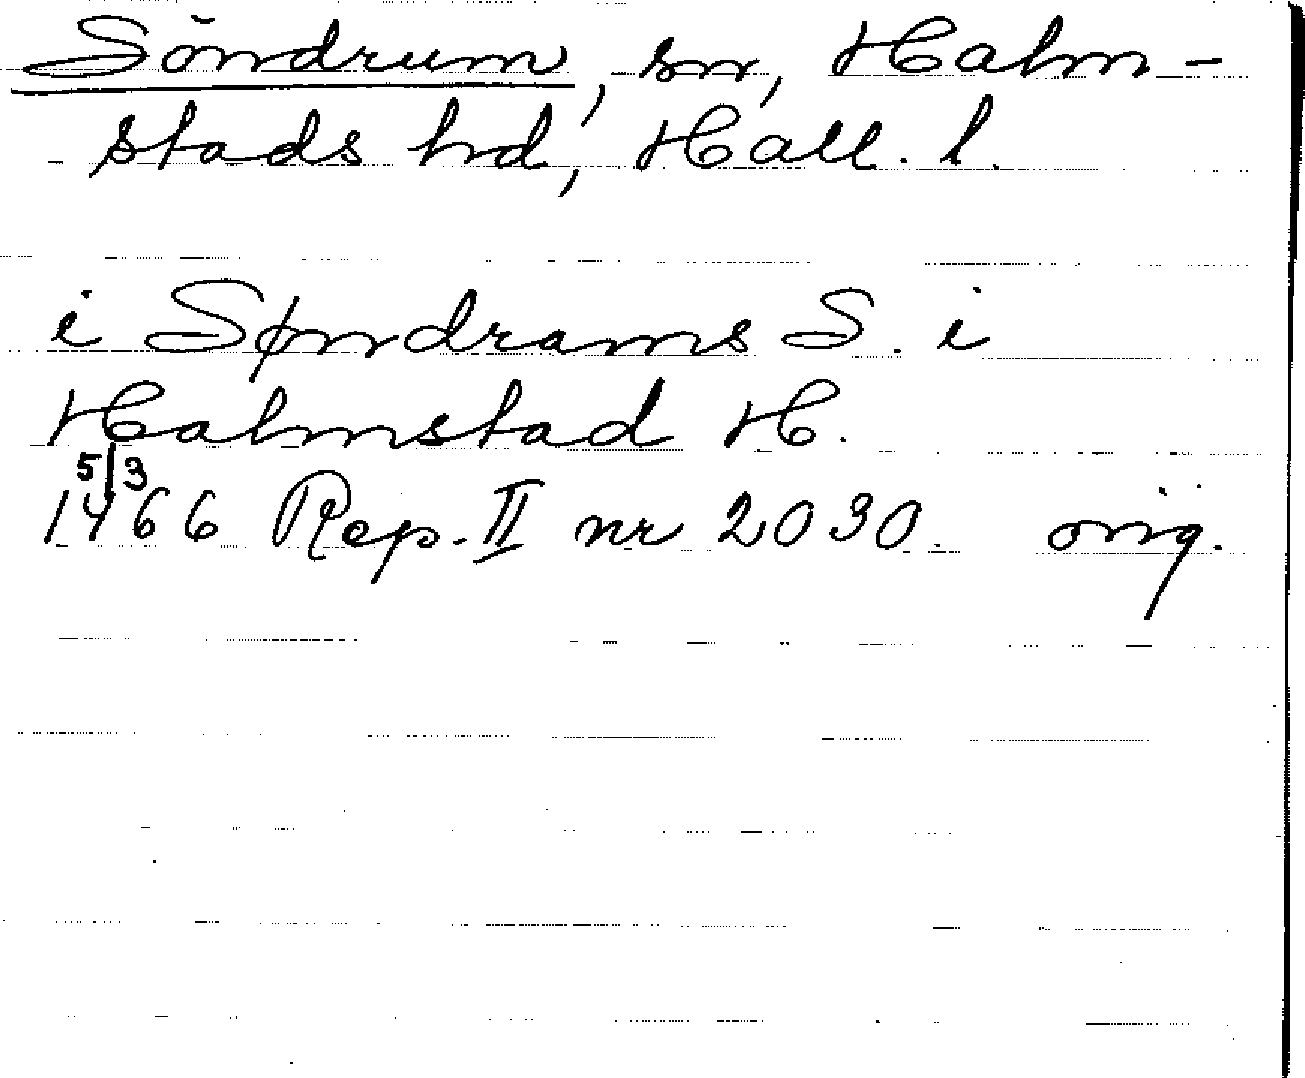 Söndrum, sn, Halm-
stads hd, Hall. l.
i Søndrams S. i
Halmstad H.
5/3
1466 Rep. II nr 2030. orig.